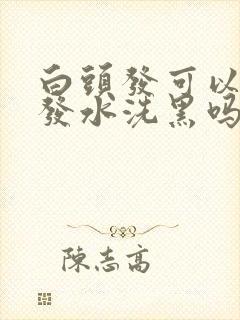 白頭發可以
發水洗黑吗
陳志高